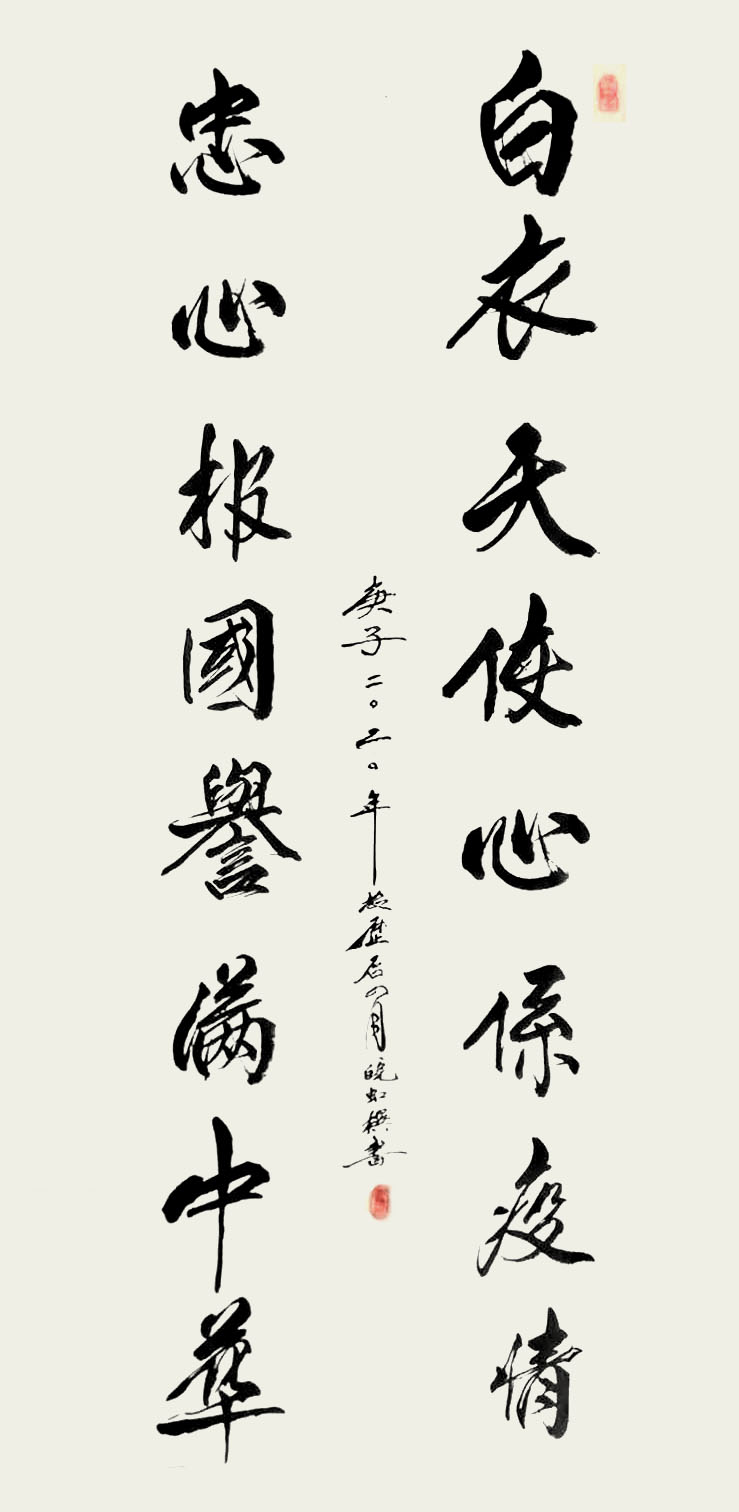 白衣天使心係疫情
忠心报國譽滿中華
庚子二〇二〇年农歷后四月皖虹撰書